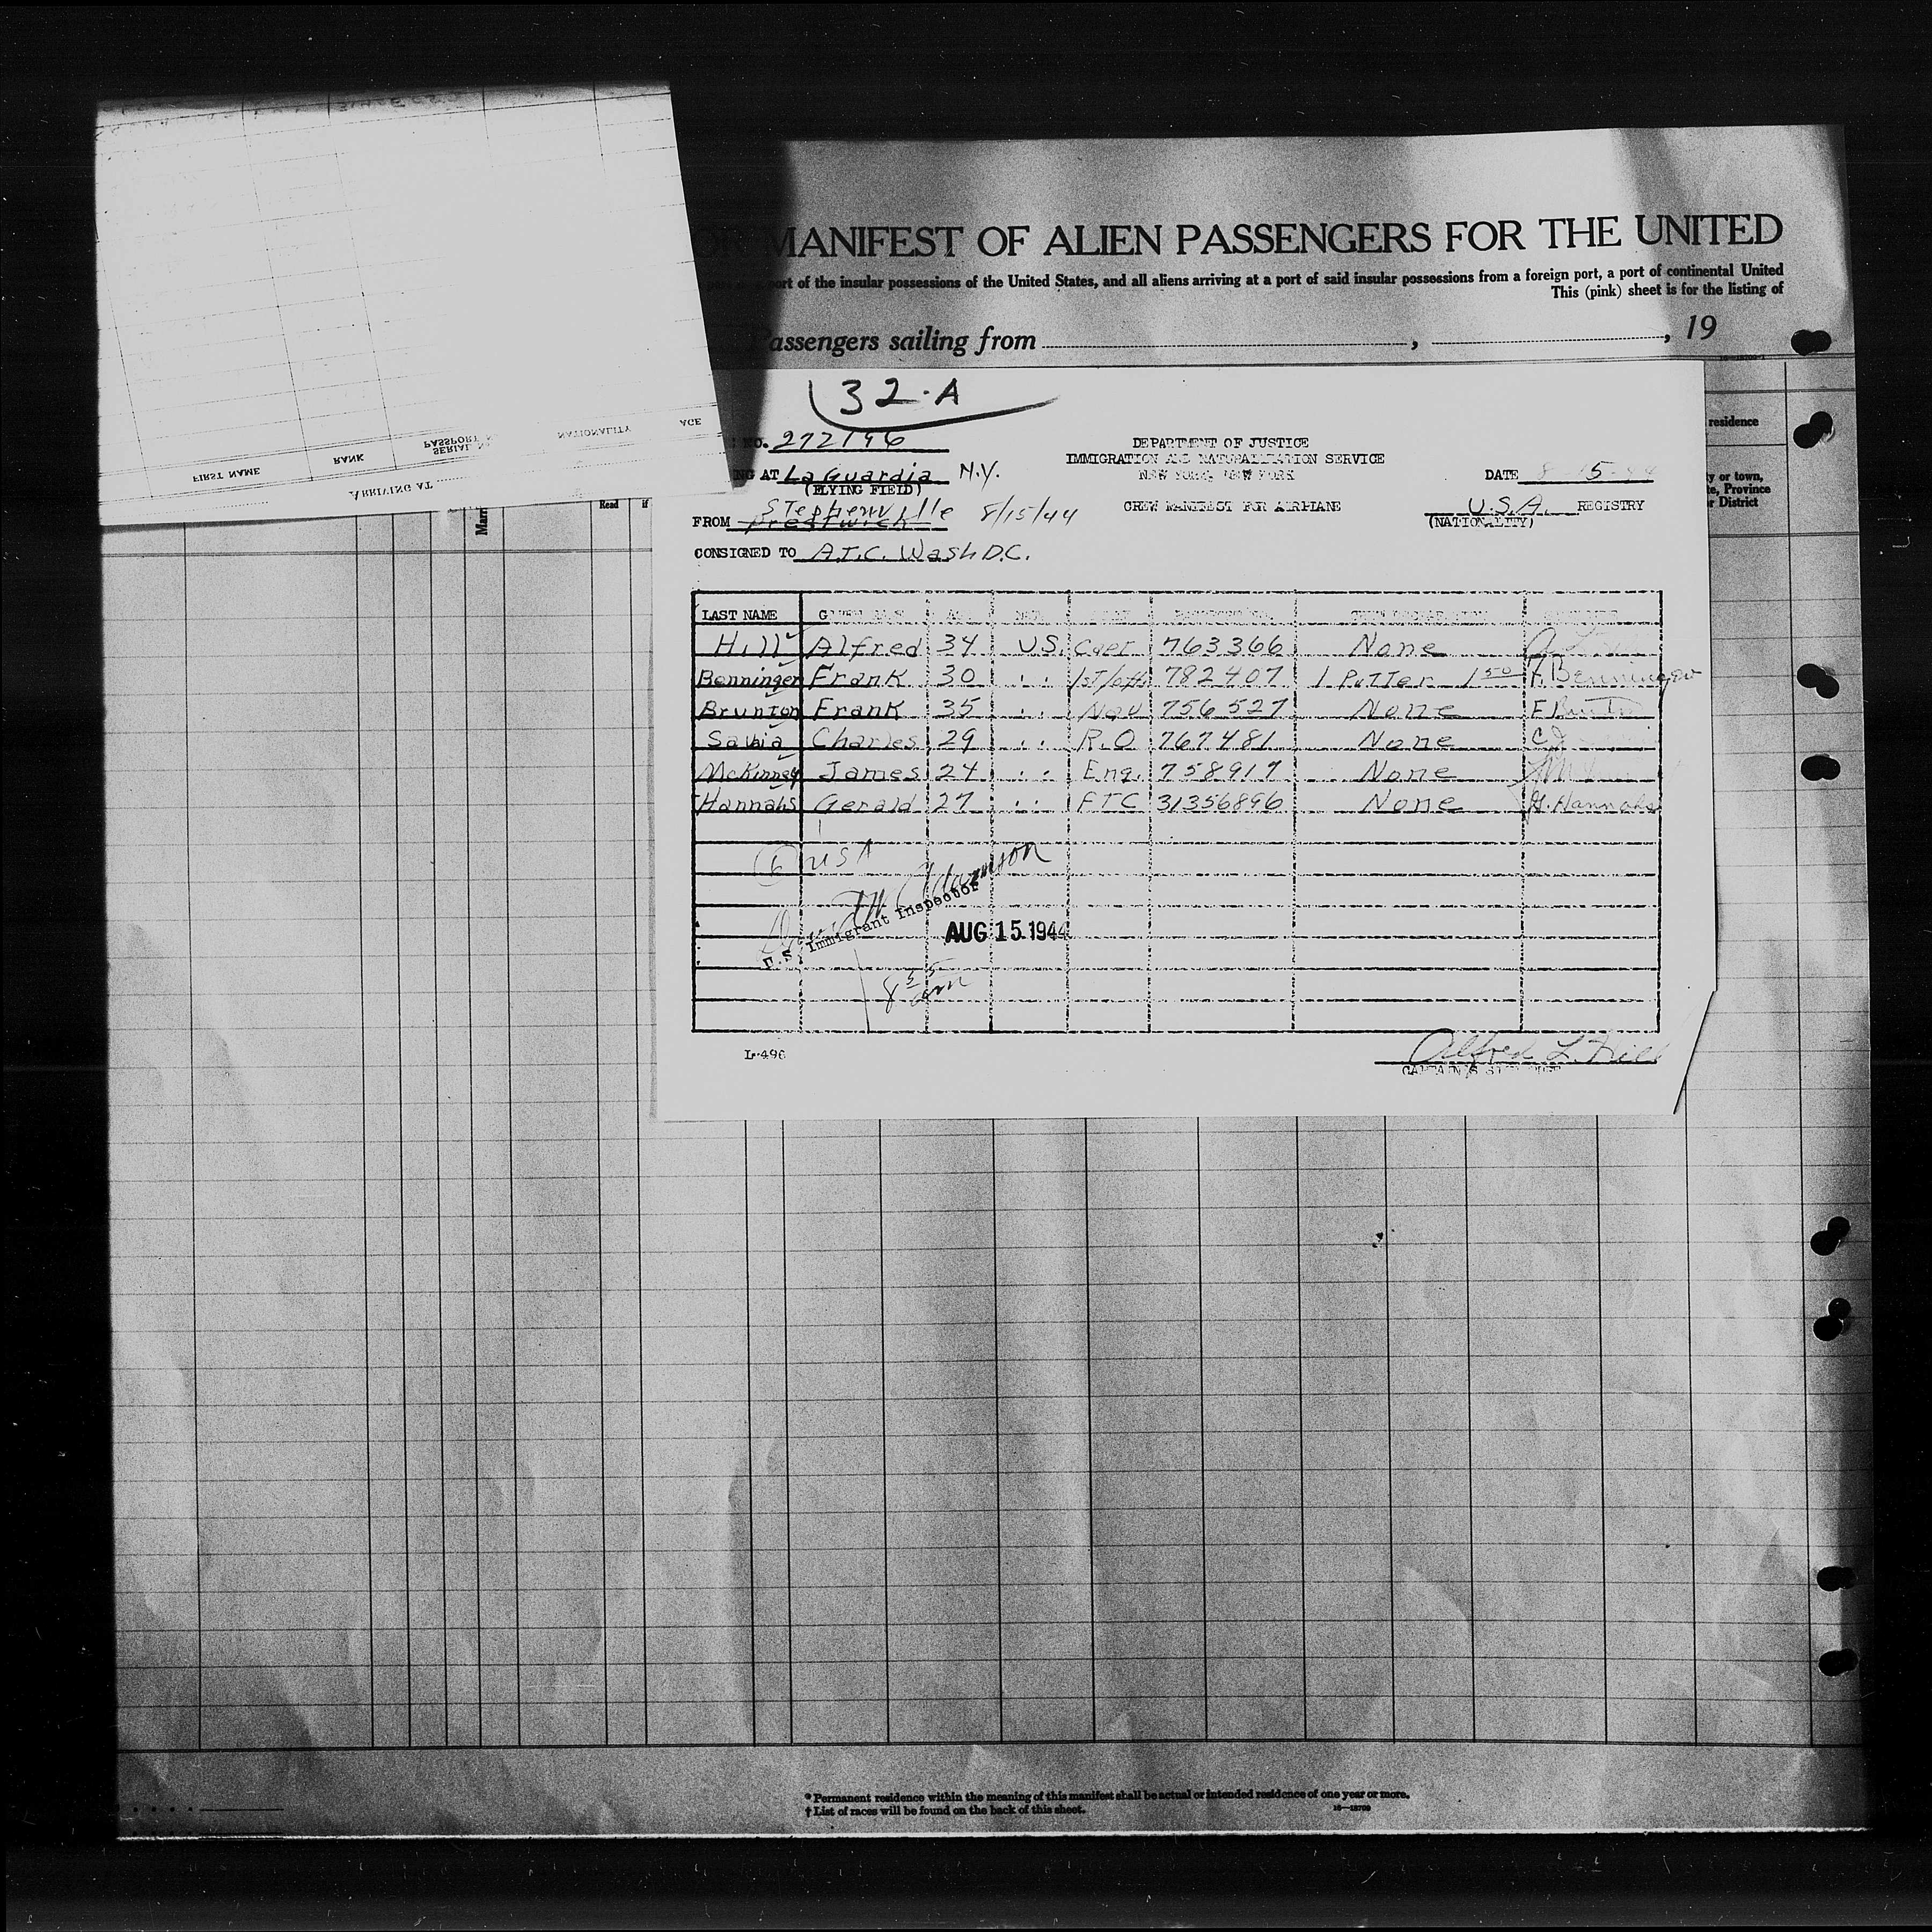 MANIFEST OF ALIEN PASSENGERS FOR THE UNITED
port of the insular possessions of the United States, and all aliens arriving at a port of said insular possessions from a foreign port, a port of continental United
This (pink) sheet is for the listing of
Passengers sailing from , , 19
FIRST NAME RANK SERIAL PASSPORT NATIONALITY AGE
ARRIVING AT
Read if
residence
y or town,
te, Province
or District
32-A
NO. 272196
DEPARTMENT OF JUSTICE
IMMIGRATION AND NATURALIZATION SERVICE
NEW YORK, NEW YORK
NG AT La Guardia N.Y.
(FLYING FIELD)
DATE 8-15-44
FROM Stephenville 8/15/44
Prestwick
CREW MANIFEST FOR AIRPLANE
U.S.A. REGISTRY
(NATIONALITY)
CONSIGNED TO A.T.C. Wash D.C.
LAST NAME
Hill Alfred 34 U.S. 763366 None
Benninger Frank 30 " 1st/off 782407 1 Putter 1.50 F. Benninger
Brunton Frank 35 " Nav 756527 None F Brunton
Savia Charles 29 " R.O 767481 None
McKinney James 24 " Eng. 758917 None
Hannahs Gerald 27 " FTC 31356896 None G. Hannahs
(6) USA
Adamson
U.S. Immigrant Inspector
AUG 15 1944
8 35 am
L-496
Alfred L. Hill
CAPTAIN'S SIGNATURE
* Permanent residence within the meaning of this manifest shall be actual or intended residence of one year or more.
† List of races will be found on the back of this sheet.